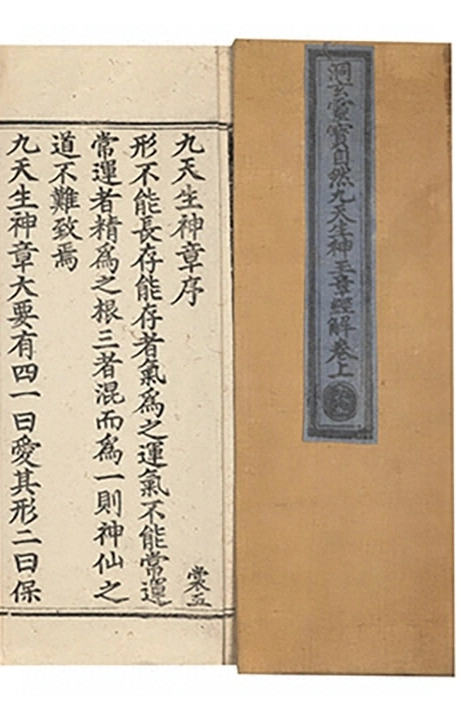 洞玄靈寳自然九天生神玉章經解卷上
九天生神章序
裳五
形不能長存能存者氣為之運氣不能常運
常運者精為之根三者混而為一則神仙之
道不難致焉
九天生神章大要有四一曰愛其形二曰保